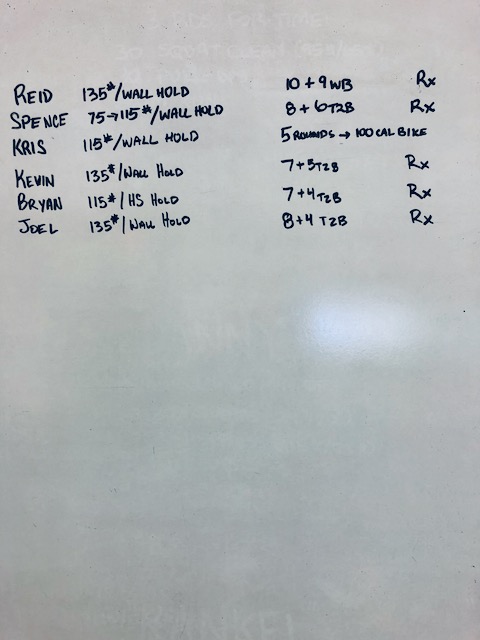 REID 135#/WALL HOLD 10 + 9 WB Rx
SPENCE 75→115#/WALL HOLD 8 + 6 T2B Rx
KRIS 115#/WALL HOLD 5 ROUNDS → 100 CAL BIKE
KEVIN 135#/WALL HOLD 7 + 5 T2B Rx
BRYAN 115#/HS HOLD 7 + 4 T2B Rx
JOEL 135#/WALL HOLD 8 + 4 T2B Rx